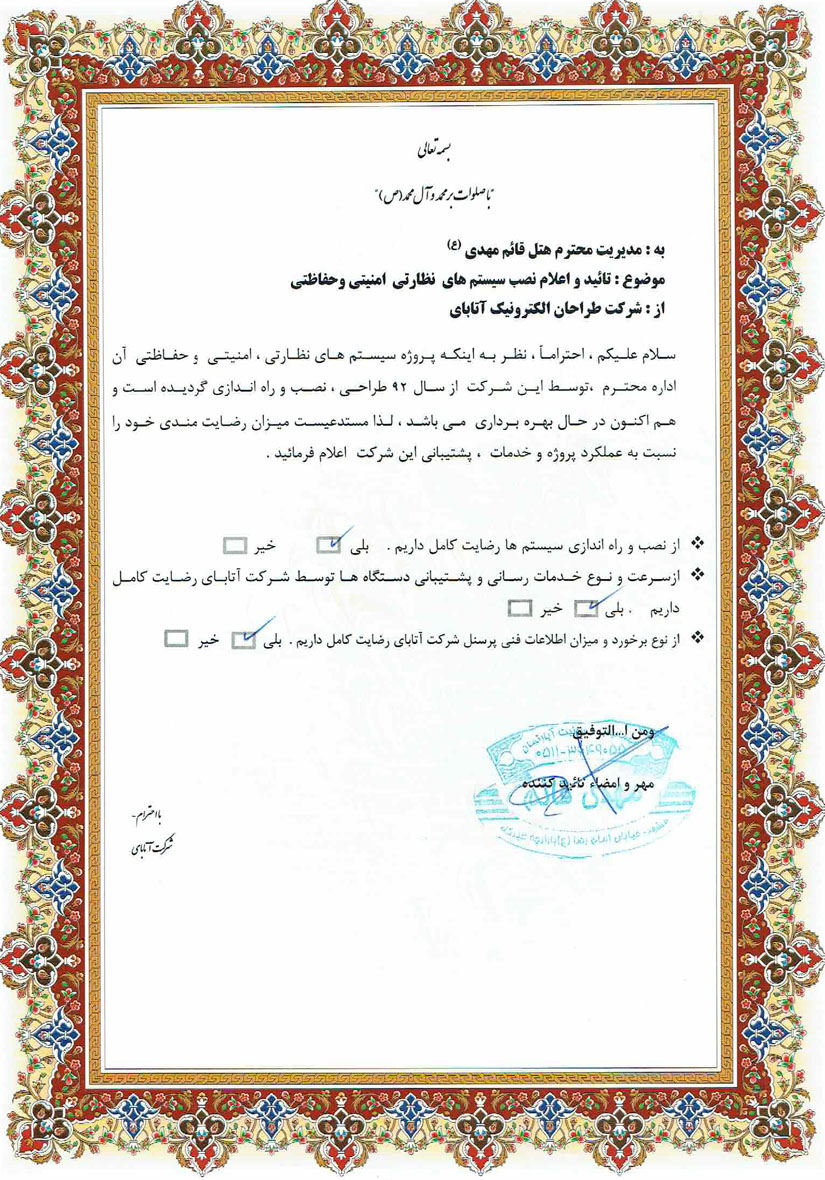 بسمه تعالی
"با صلوات بر محمد و آل محمد (ص)"
به : مدیریت محترم هتل قائم مهدی (ع)
موضوع : تائید و اعلام نصب سیستم های نظارتی امنیتی وحفاظتی
از : شرکت طراحان الکترونیک آتابای
سلام علیکم ، احتراماً ، نظر به اینکه پروژه سیستم های نظارتی ، امنیتی و حفاظتی آن
اداره محترم ،توسط این شرکت از سال ۹۲ طراحی ، نصب و راه اندازی گردیده است و
هم اکنون در حال بهره برداری می باشد ، لذا مستدعیست میزان رضایت مندی خود را
نسبت به عملکرد پروژه و خدمات ، پشتیبانی این شرکت اعلام فرمائید .
❖ از نصب و راه اندازی سیستم ها رضایت کامل داریم . بلی ☑ خیر ☐
❖ ازسرعت و نوع خدمات رسانی و پشتیبانی دستگاه ها توسط شرکت آتابای رضایت کامل
داریم . بلی ☑ خیر ☐
❖ از نوع برخورد و میزان اطلاعات فنی پرسنل شرکت آتابای رضایت کامل داریم . بلی ☑ خیر ☐
ومن ا...التوفیق
مهر و امضاء تائید کننده
با احترام-
شرکت آتابای